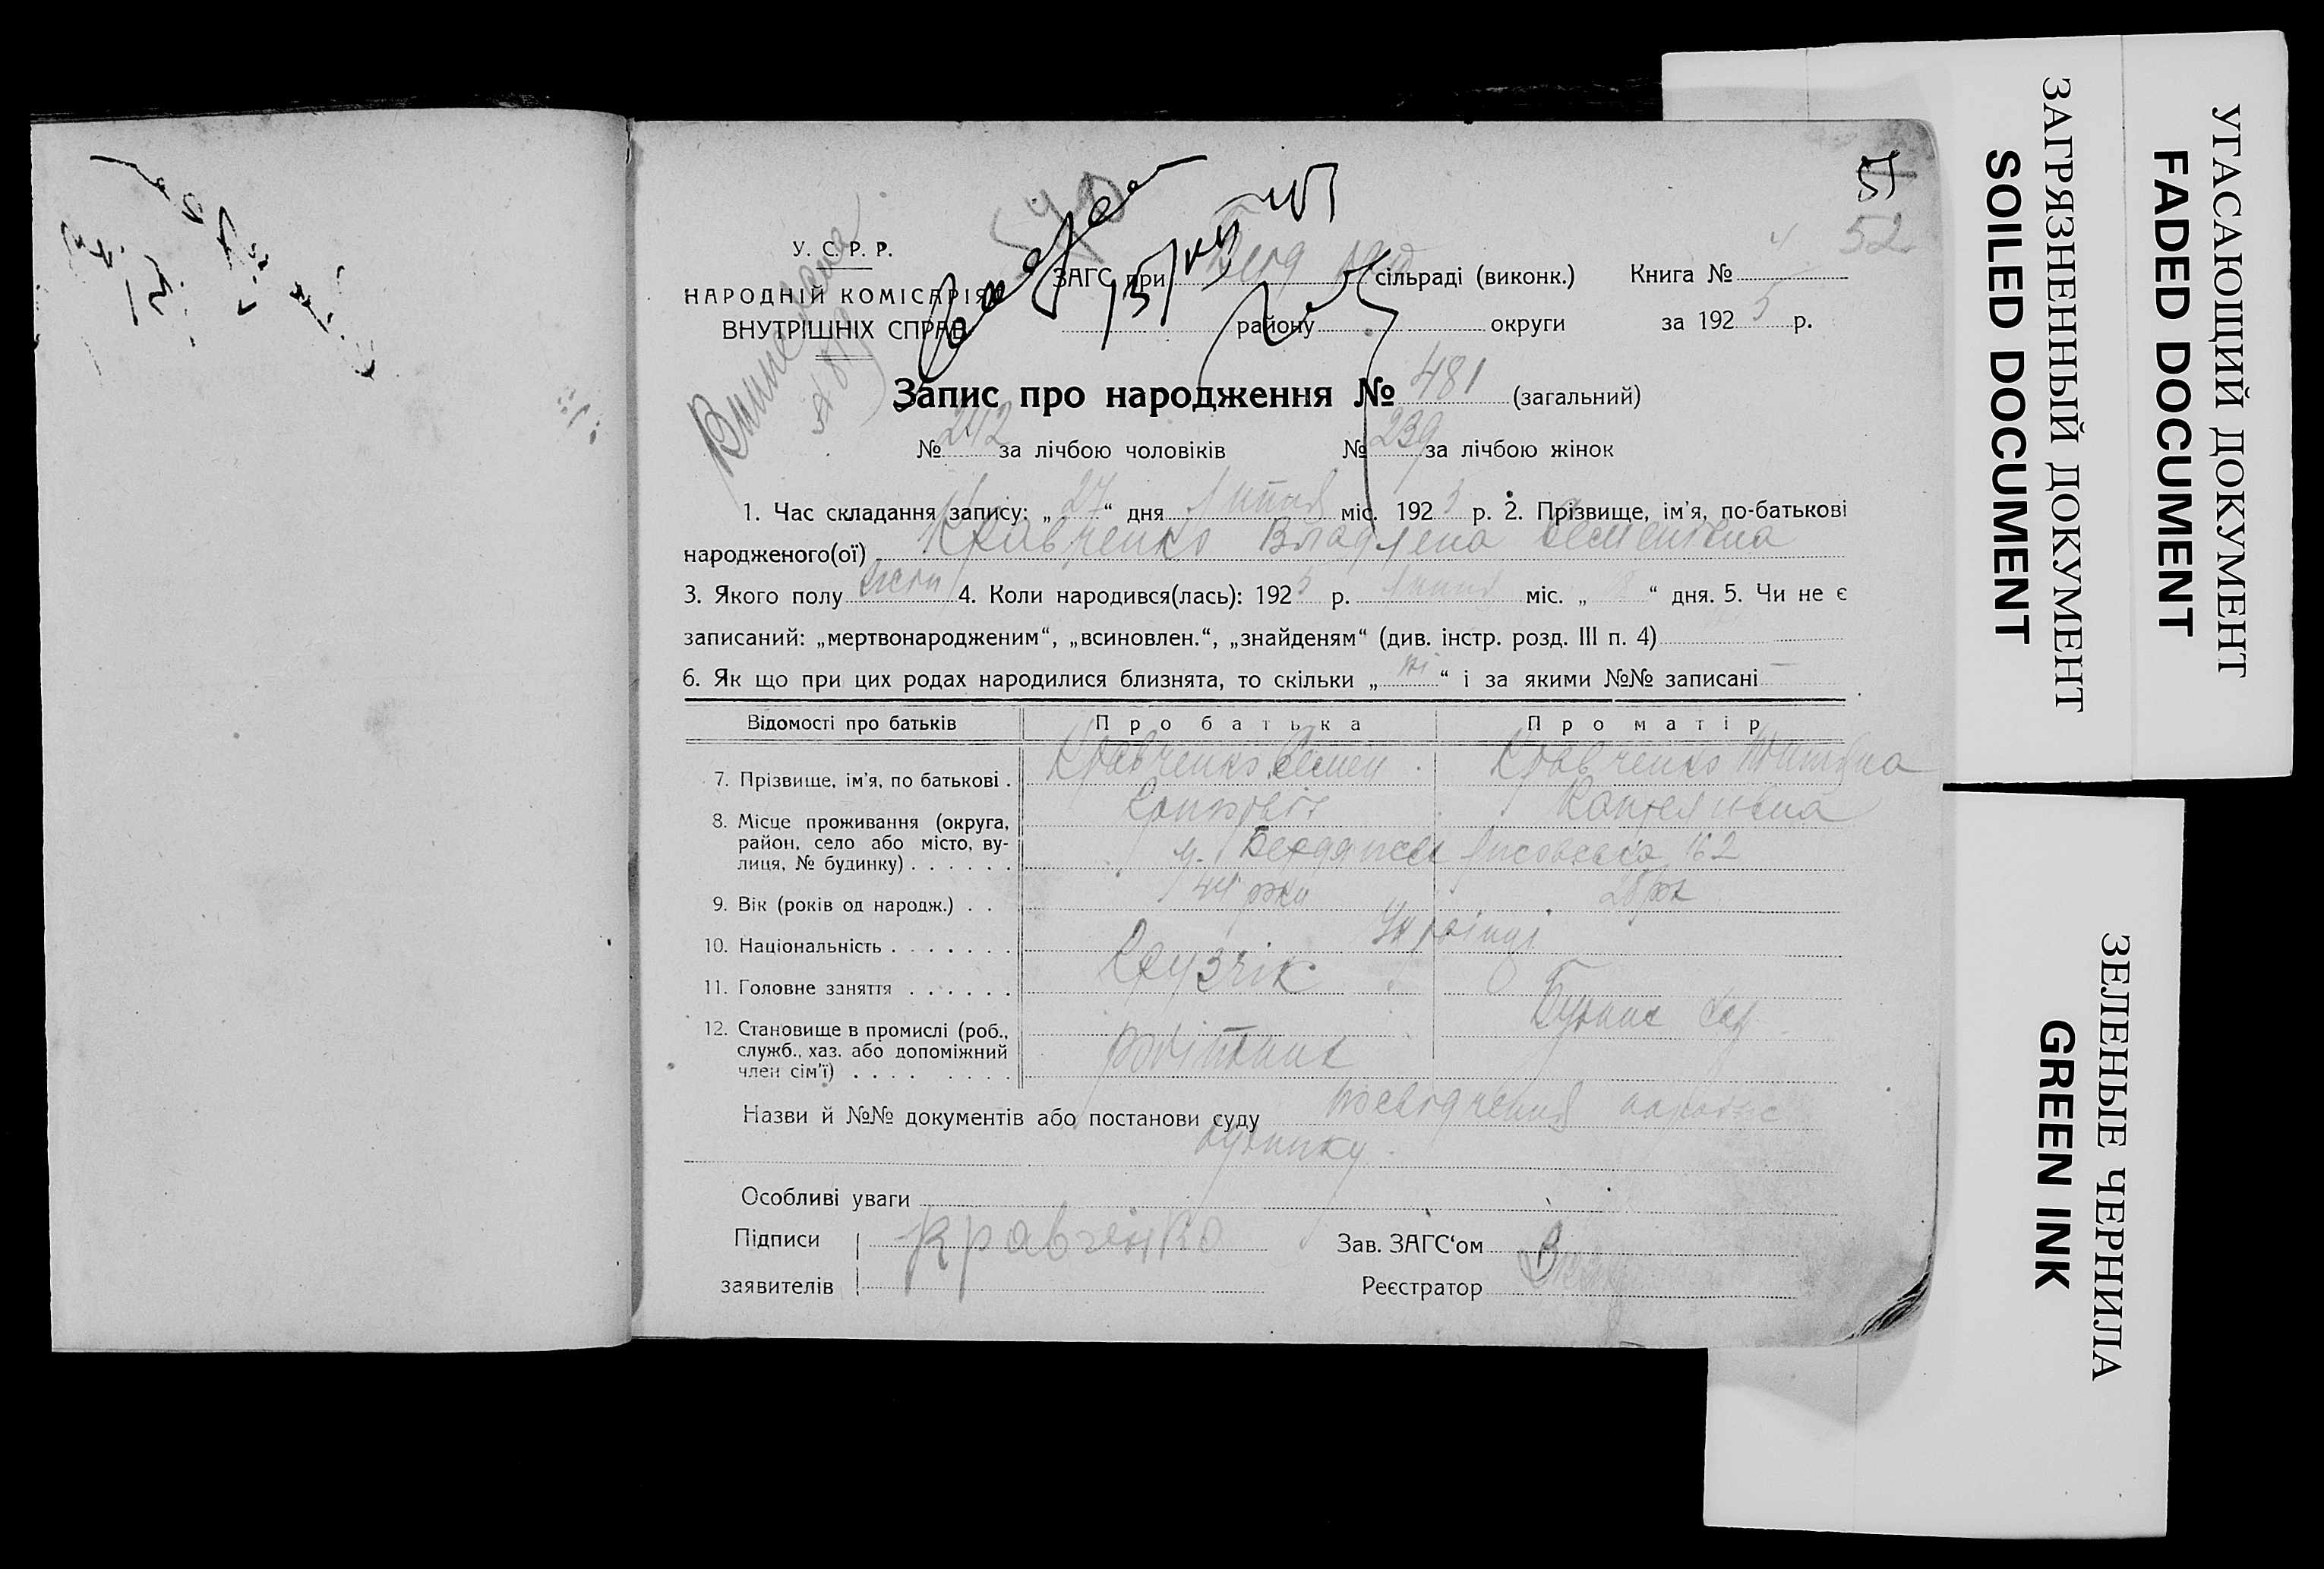 52
У. С. Р. Р.
НАРОДНІЙ КОМІСАРІЯТ
ВНУТРІШНІХ СПРАВ
ЗАГС при Берд сільраді (виконк.) Книга № 4
району округи за 1925 р.
Запис про народження № 481 (загальний)
№ 242 за лічбою чоловіків № 239 за лічбою жінок
1. Час складання запису: „ 27 “ дня Липня міс. 1925 р. 2. Прізвище, ім'я, по-батькові
народженого(ої) Кравченко Владлена Семенівна
3. Якого полу жіночого 4. Коли народився(лась): 1925 р. липня міс. „ 8 “ дня. 5. Чи не є
записаний: „мертвонародженим“, „всиновлен.“, „знайденям“ (див. інстр. розд. III п. 4)
6. Як що при цих родах народилися близнята, то скільки „ ні “ і за якими №№ записані —
Відомості про батьків Про батька Про матір
7. Прізвище, ім'я, по батькові . Кравченко Семен Кравченко
8. Місце проживання (округа,
район, село або місто, ву-
лиця, № будинку) . . . . . . м. Бердянськ Лисовська 162
9. Вік (років од народж.) . . 44 роки 28 рок
10. Національність . . . . . . . Українці
11. Головне заняття . . . . . . Грузчік
12. Становище в промислі (роб.,
служб., хаз. або допоміжний
член сім'ї) . . . . . . . . робітник
Назви й №№ документів або постанови суду посвідчення
будинку
Особливі уваги
Підписи Кравченко Зав. ЗАГС‘ом
заявителів Реєстратор
УГАСАЮЩИЙ ДОКУМЕНТ
FADED DOCUMENT
ЗАГРЯЗНЕННЫЙ ДОКУМЕНТ
SOILED DOCUMENT
ЗЕЛЕНЫЕ ЧЕРНИЛА
GREEN INK